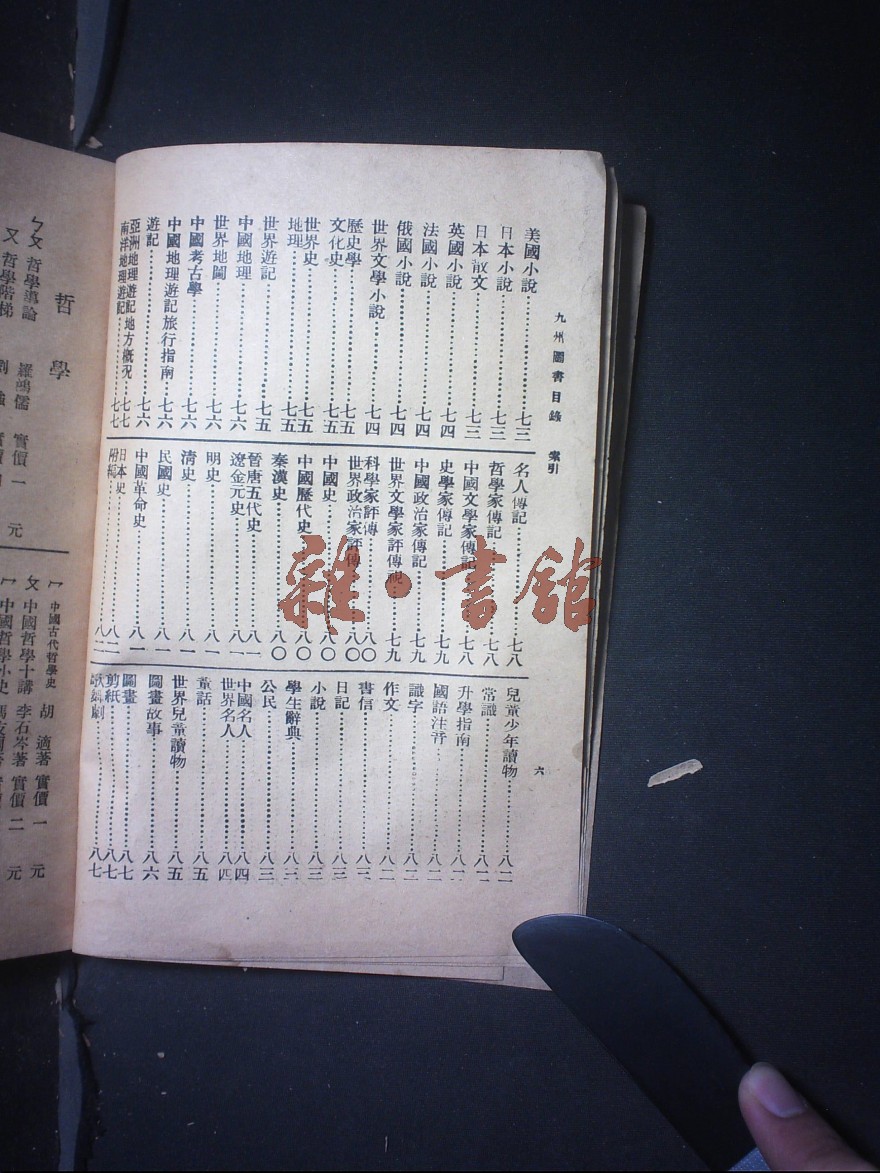 九州圖書目錄 索引 六
美國小說……七三
日本小說……七三
日本散文……七三
英國小說……七四
法國小說……七四
俄國小說……七四
世界文學小說……七四
歷史學……七五
文化史……七五
世界史……七五
地理……七五
世界遊記……七五
中國地理……七六
世界地圖……七六
中國考古學……七六
中國地理遊記旅行指南……七六
遊記……七六
亞洲地理遊記地方概況……七七
南洋地理遊記……七七
名人傳記……七八
哲學家傳記……七八
中國文學家傳記……七八
史學家傳記……七九
中國政治家傳記……七九
世界文學家評傳……七九
科學家評傳……八〇
世界政治家評傳……八〇
中國史……八〇
中國歷代史……八〇
秦漢史……八〇
晉唐五代史……八一
遼金元史……八一
明史……八一
清史……八一
民國史……八一
中國革命史……八一
日本史……八二
附編……八二
兒童少年讀物……八二
常識……八二
升學指南……八二
國語注音……八二
識字……八二
作文……八二
書信……八三
日記……八三
小說……八三
學生辭典……八三
公民……八三
中國名人……八四
世界名人……八四
童話……八五
世界兒童讀物……八五
圖畫故事……八六
圖畫……八七
剪紙……八七
劇……八七
哲學
ㄅㄆ 哲學導論 羅鴻儒 實價一元
又 哲學階梯 劉強
中國古代哲學史 胡適著 實價一元
ㄆ 中國哲學十講 李石岑著 實價二元
中國哲學小史
雜·書館